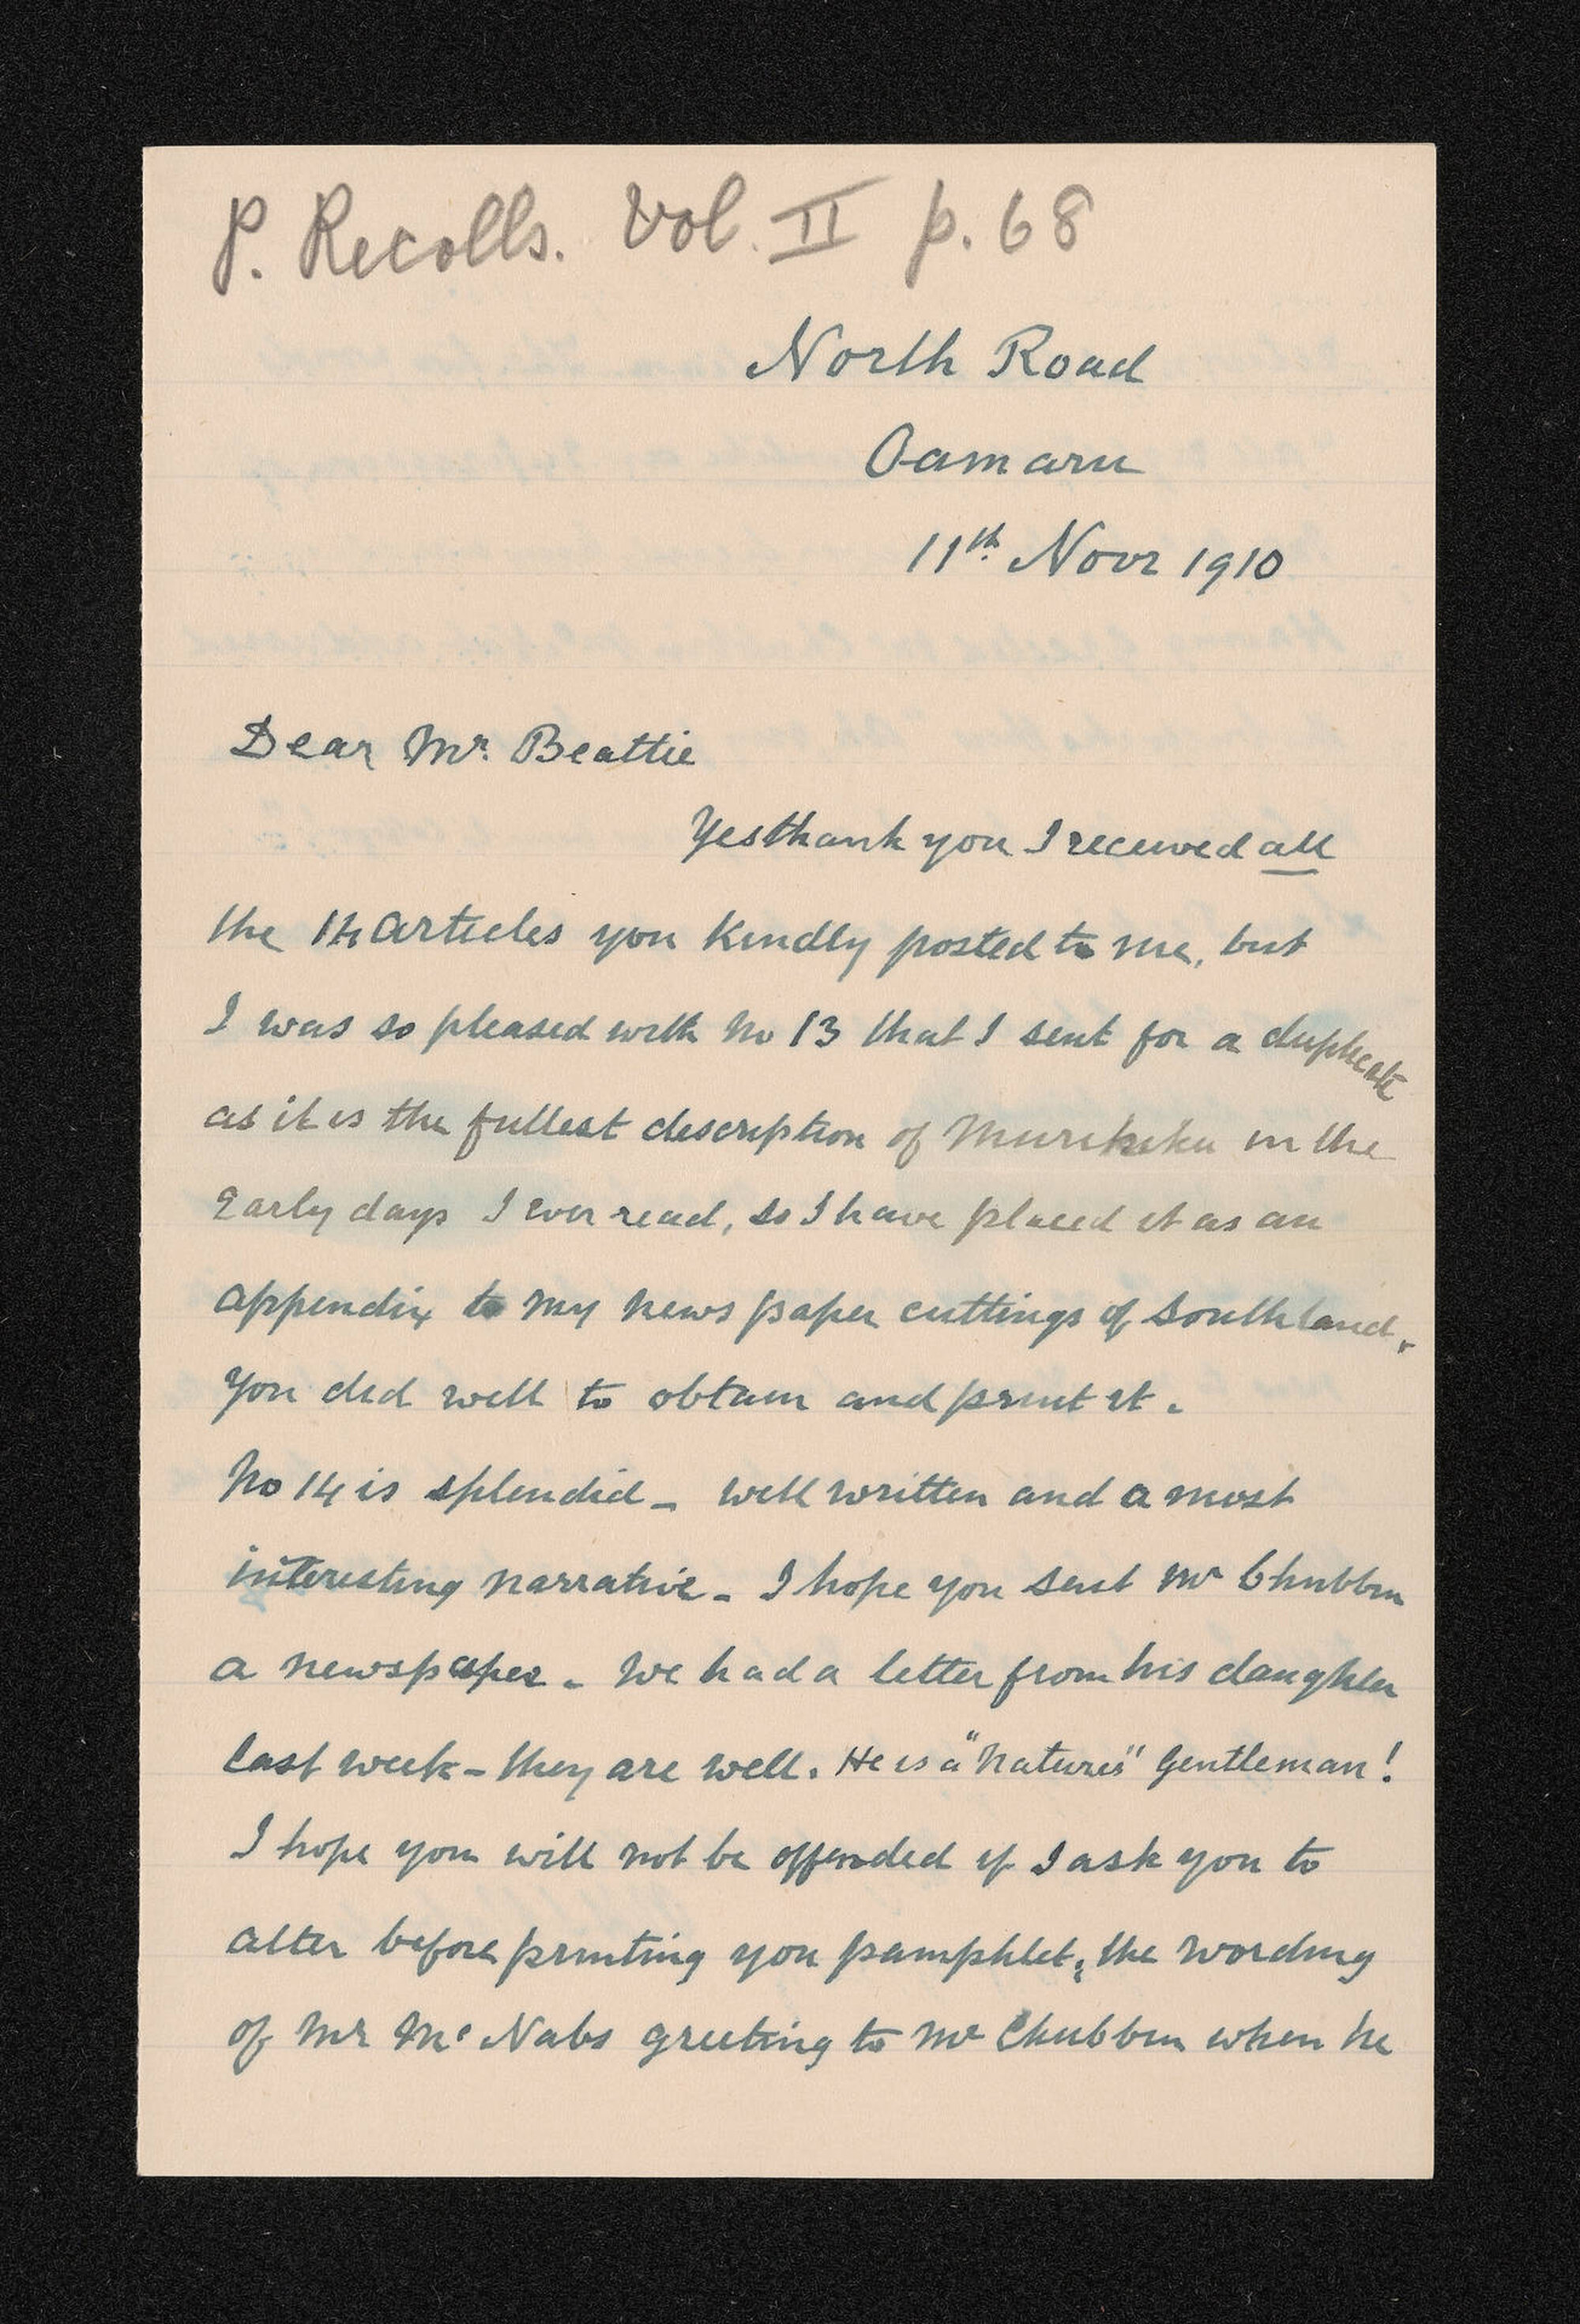 P. Recolls. Vol. II p. 68
North Road
Oamaru
11th Novr 1910
Dear Mr. Beattie
Yes thank you I received all
the 14 articles you kindly posted to me, but
I was so pleased with No 13 that I sent for a duplicate
as it is the fullest description of Murihiku in the
Early days I ever read, so I have placed it as an
appendix to my news paper cuttings of Southland.
You did well to obtain and print it.
No 14 is splendid - well written and a most
interesting narrative - I hope you sent Mr Chubbin
a newspaper - We had a letter from his daughter
last week - they are well. He is a "Nature's" Gentleman!
I hope you will not be offended if I ask you to
alter before printing you pamphlet, the wording
of Mr McNabs greeting to Mr Chubbin when he